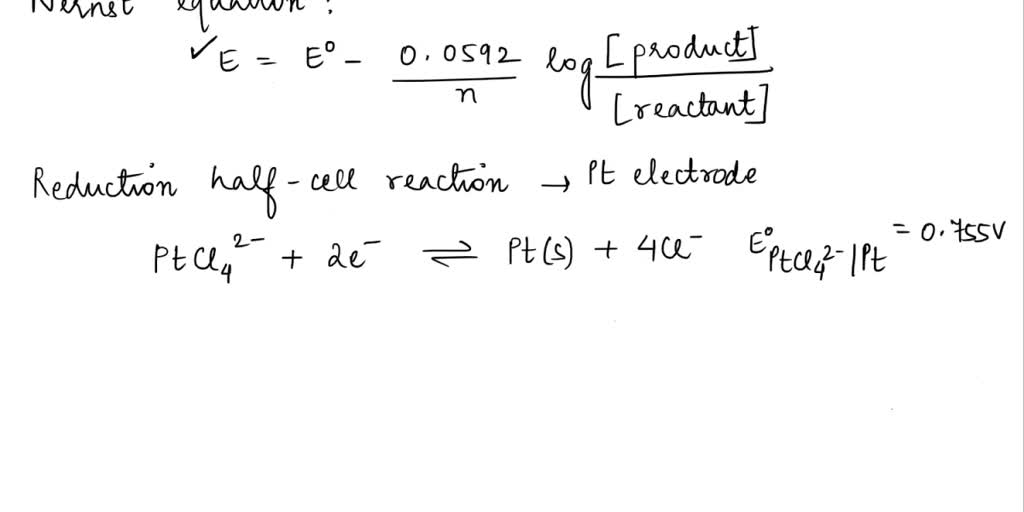 Nernst equation :
✓ E = E° - 0.0592/n log [product]/[reactant]
Reduction half-cell reaction → Pt electrode
PtCl₄²⁻ + 2e⁻ ⇌ Pt(s) + 4Cl⁻ E°PtCl₄²⁻|Pt = 0.755V